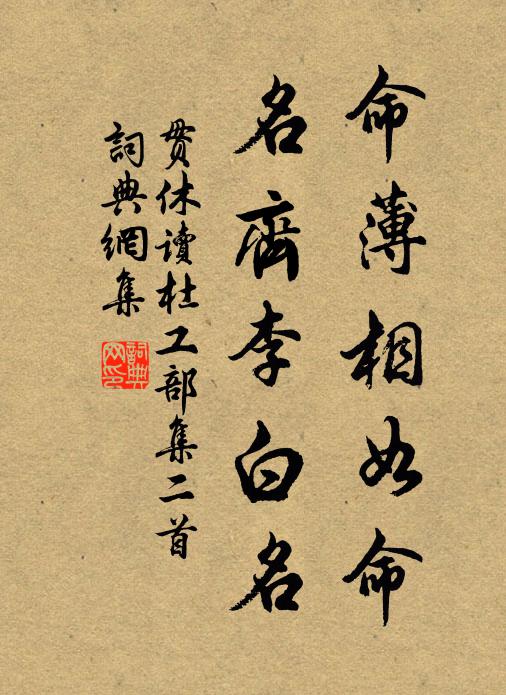 命薄相如命
名齊李白名
貫休讀杜工部集二首
詞典網集
詞典網印